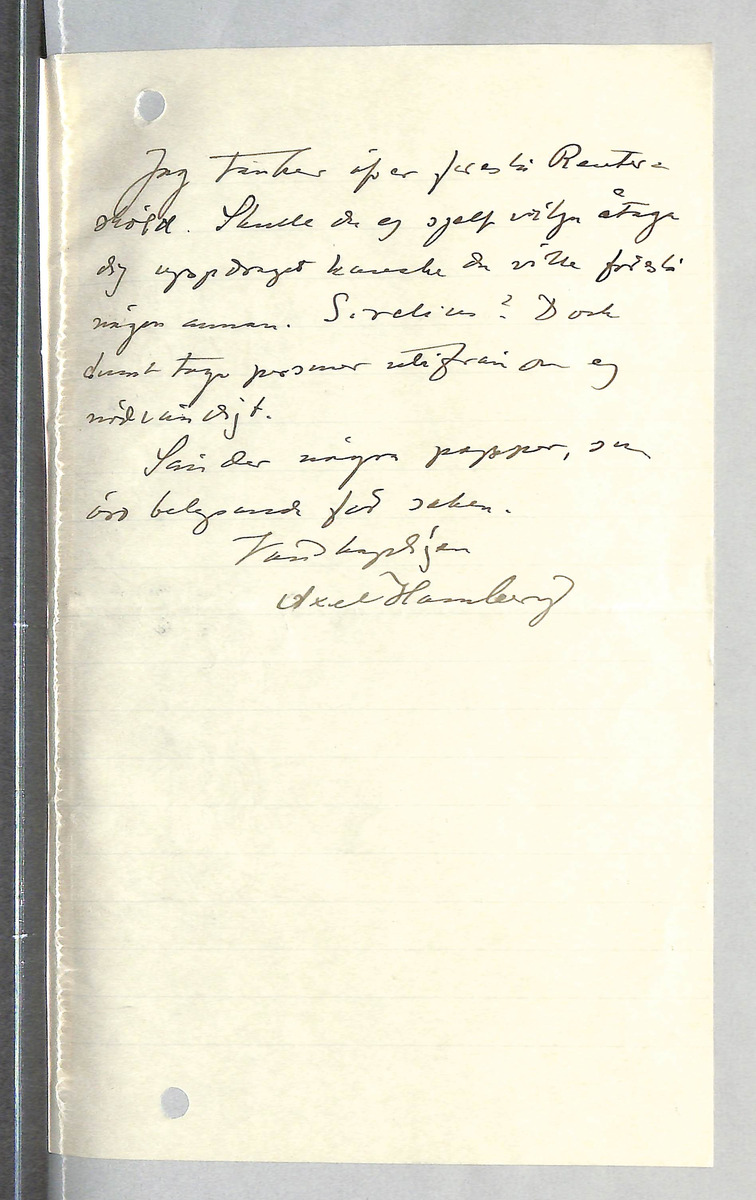 Jag tänker äfven föreslå Reuter=
skiöld. Skulle du ej sjelf vilja åtaga
dig uppdraget kanske du ville föreslå
någon annan. Sirelius? Dock
dumt taga personer utifrån om ej
nödvändigt.
Sänder några papper, som
äro belysande för saken.
Vänskapligen
Axel Hamberg